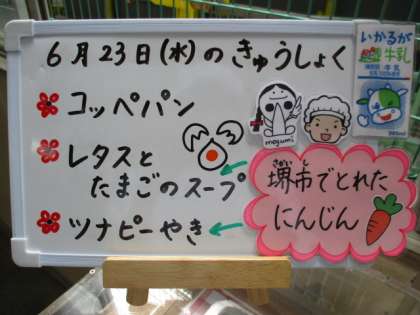 6月23日(水)のきゅうしょく
コッペパン
レタスと
たまごのスープ
ツナピーやき
mogumi
いかるが
牛乳
さかい し
堺市でとれた
にんじん